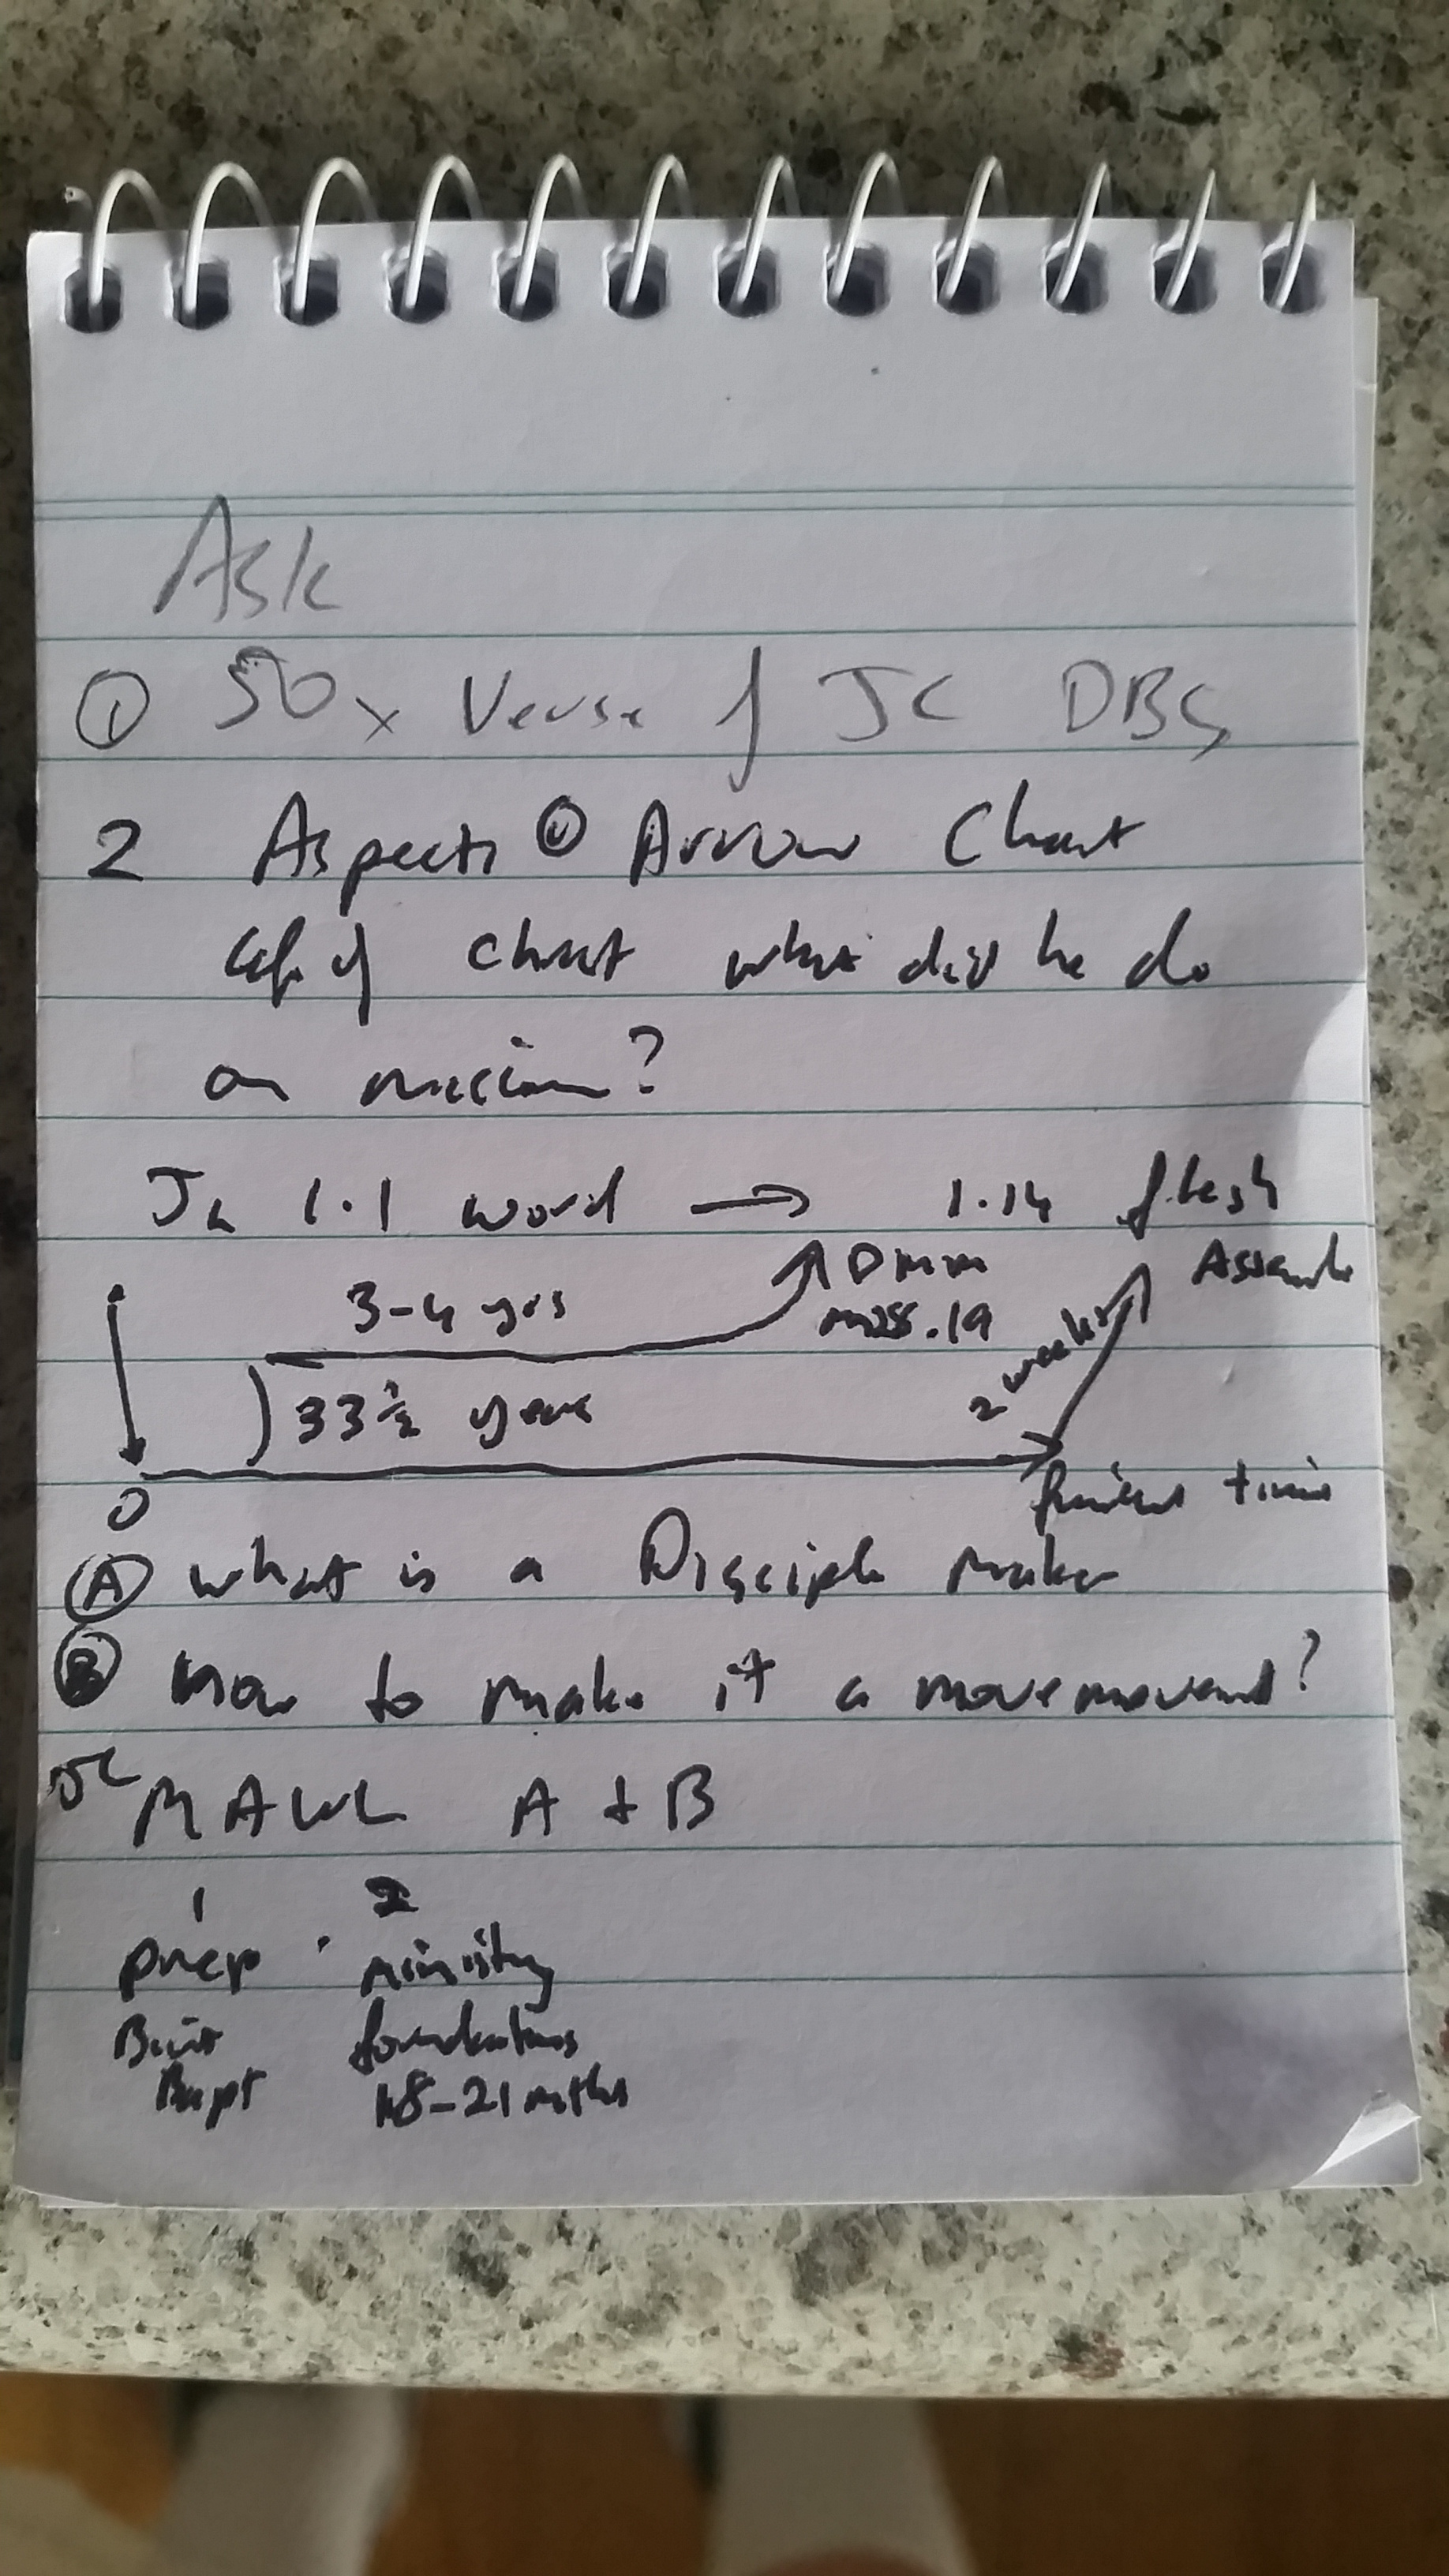 Ask
① 50x Verse of JC DBS
2 Aspects ① Arrow Chart
life of Christ what did he do
on mission?
Jn 1.1 word → 1.14 flesh
3-4 yrs DMM
m28.19
33½ years
2 weeks
0
time
Ⓐ what is a Disciple maker
Ⓑ How to make it a movemovement?
JC MAWL A + B
1 2
prep ministry
foundations
Bapt 18-21 mths